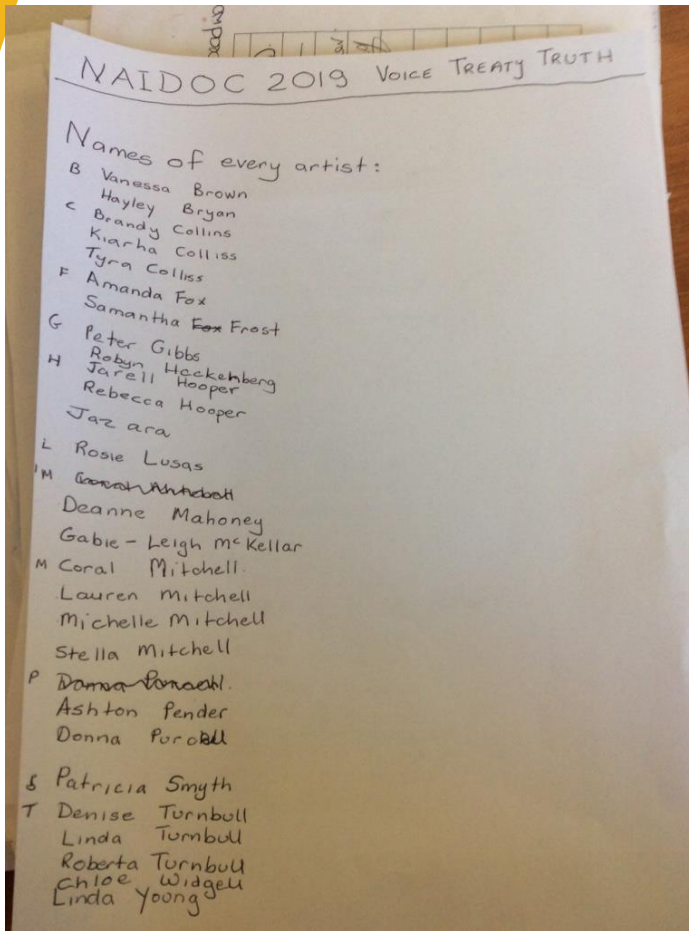 NAIDOC 2019 VOICE TREATY TRUTH
Names of every artist:
B Vanessa Brown
Hayley Bryan
C Brandy Collins
Kiarha Colliss
Tyra Colliss
F Amanda Fox
Samantha Fox Frost
G Peter Gibbs
Robyn Heckenberg
H Jarell Hooper
Rebecca Hooper
Jaz ara
L Rosie Lusas
M
Deanne Mahoney
Gabie - Leigh McKellar
M Coral Mitchell
Lauren Mitchell
Michelle Mitchell
Stella Mitchell
P
Ashton Pender
Donna Purcell
S Patricia Smyth
T Denise Turnbull
Linda Turnbull
Roberta Turnbull
Chloe Widgell
Linda Young